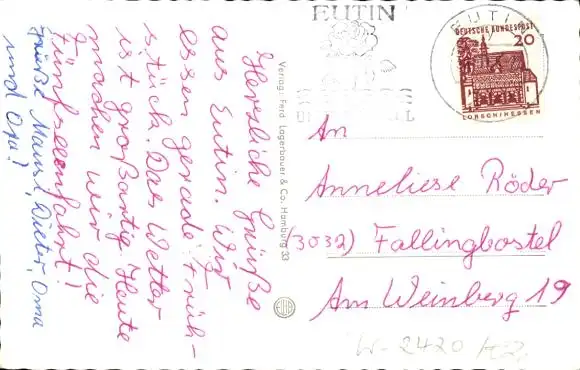 Herzliche Grüße
aus Eutin. Wir
essen gerade Früh-
stück. Das Wetter
ist großartig. Heute
machen wir die
Fünfseenfahrt!
Mausi, Dieter, Oma
und Opa!
Verlag: Ferd. Lagerbauer & Co., Hamburg 33
EUTIN
EUTI
DEUTSCHE BUNDESPOST
20
LORSCH/HESSEN
An
Anneliese Röder
(3032) Fallingbostel
Am Weinberg 19
W-2420